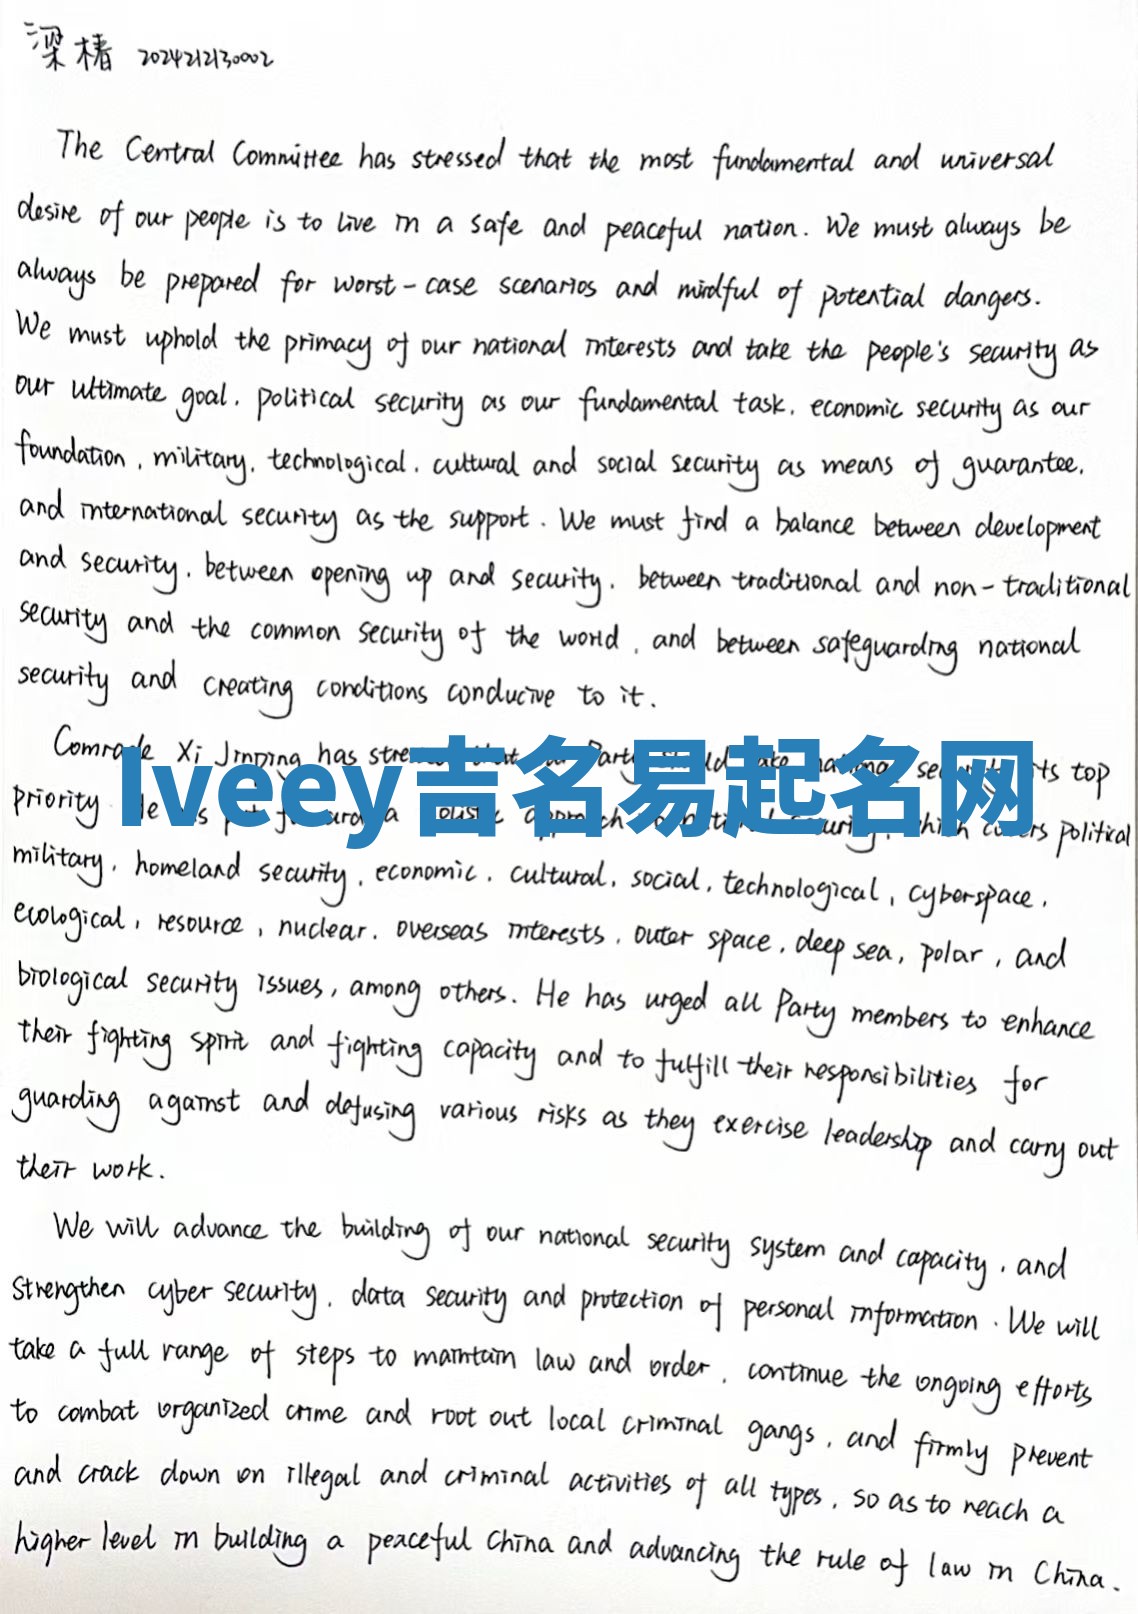 梁椿 2024212130002
The Central Committee has stressed that the most fundamental and universal
desire of our people is to live in a safe and peaceful nation. We must always be
always be prepared for worst-case scenarios and mindful of potential dangers.
We must uphold the primacy of our national interests and take the people's security as
our ultimate goal, political security as our fundamental task, economic security as our
foundation, military, technological, cultural and social security as means of guarantee,
and international security as the support. We must find a balance between development
and security, between opening up and security, between traditional and non-traditional
security and the common security of the world, and between safeguarding national
security and creating conditions conducive to it.
Comrade Xi Jinping has that Party its top
Iveey吉名易起名网
priority a political
military, homeland security, economic, cultural, social, technological, cyberspace,
ecological, resource, nuclear, overseas interests, outer space, deep sea, polar, and
biological security issues, among others. He has urged all Party members to enhance
their fighting spirit and fighting capacity and to fulfill their responsibilities for
guarding against and defusing various risks as they exercise leadership and carry out
their work.
We will advance the building of our national security system and capacity, and
strengthen cyber security, data security and protection of personal information. We will
take a full range of steps to maintain law and order, continue the ongoing efforts
to combat organized crime and root out local criminal gangs, and firmly prevent
and crack down on illegal and criminal activities of all types, so as to reach a
higher level in building a peaceful China and advancing the rule of law in China.